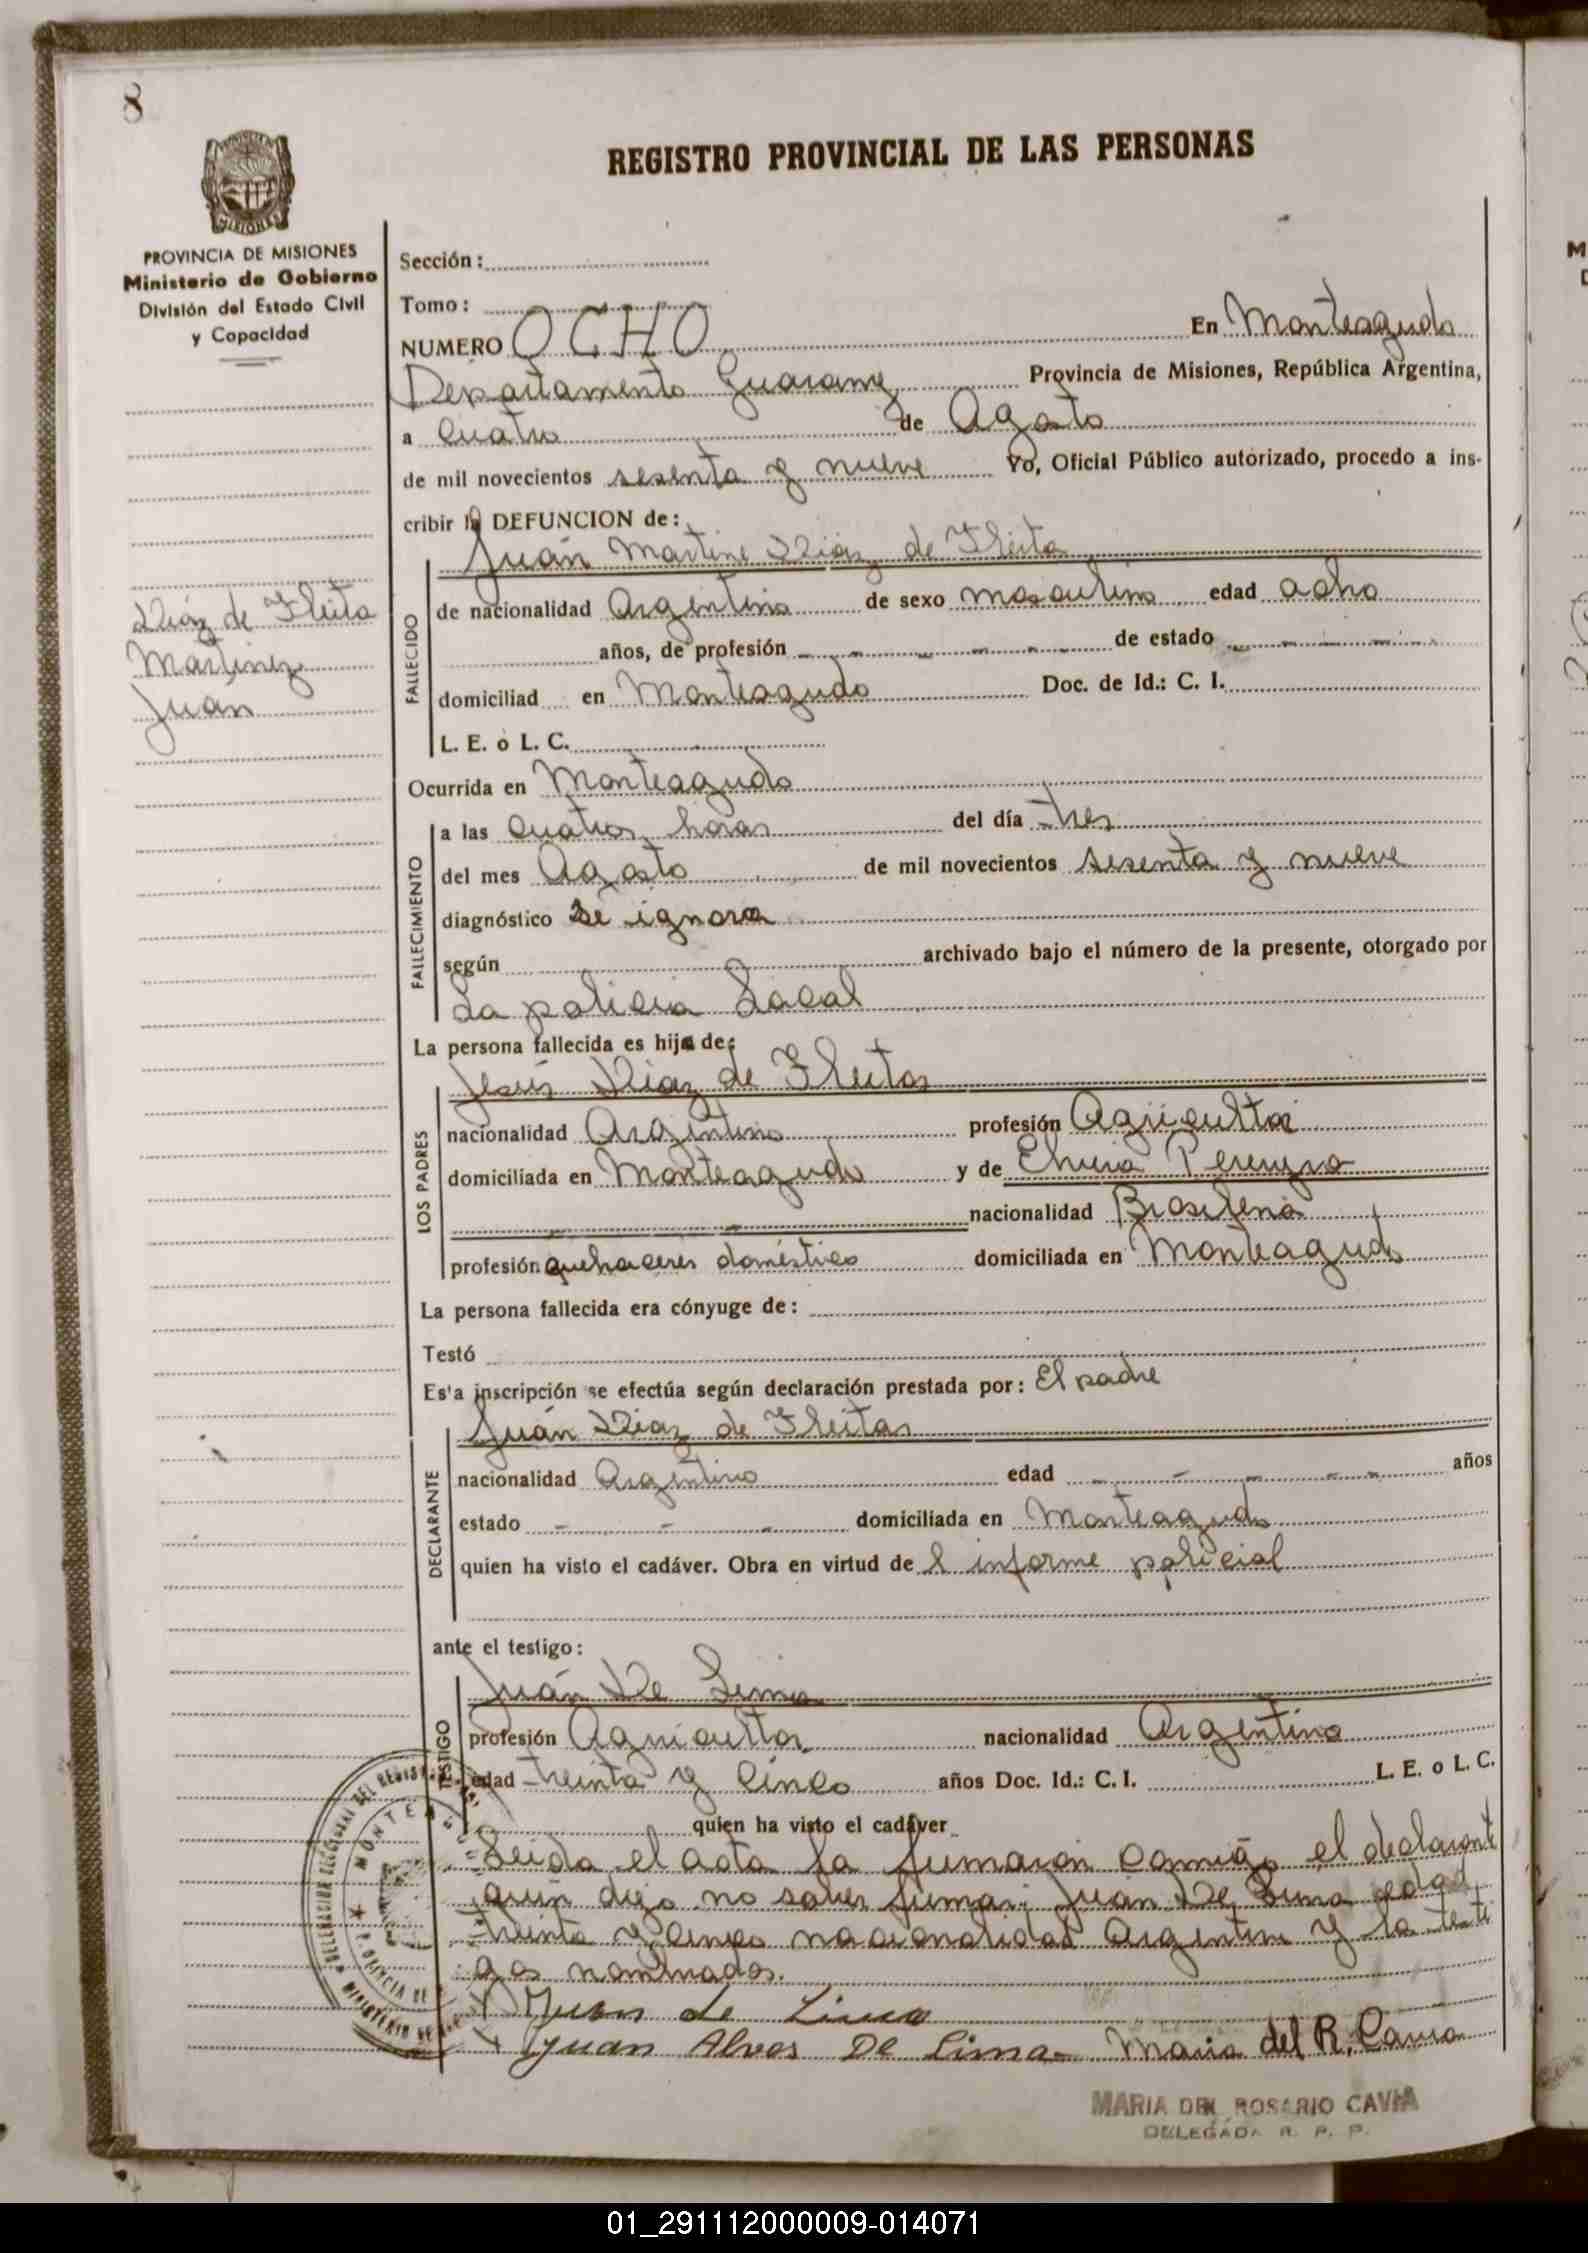 8
REGISTRO PROVINCIAL DE LAS PERSONAS
PROVINCIA DE MISIONES
Ministerio de Gobierno
División del Estado Civil
y Capacidad
Sección:
Tomo:
NUMERO OCHO En Monteagudo
Departamento Guarany Provincia de Misiones, República Argentina,
a cuatro de Agosto
de mil novecientos sesenta y nueve Yo, Oficial Público autorizado, procedo a ins-
cribir la DEFUNCION de:
Juán Martine Diaz de Fleita
Diaz de Fleita
Martinez
Juán
FALLECIDO
de nacionalidad Argentino de sexo masculino edad ocho
años, de profesión - - - - - de estado - - - -
domiciliad en Monteagudo Doc. de Id.: C. I.
L. E. o L. C.
Ocurrida en Monteagudo
FALLECIMIENTO
a las cuatros horas del día tres
del mes Agosto de mil novecientos sesenta y nueve
diagnóstico se ignora
según archivado bajo el número de la presente, otorgado por
La policia Local
La persona fallecida es hijo de:
Jesús Diaz de Fleitas
LOS PADRES
nacionalidad Argentino profesión Agricultor
domiciliada en Monteagudo y de Pereyra
nacionalidad Brasileña
profesión quehaceres doméstico domiciliada en Monteagudo
La persona fallecida era cónyuge de:
Testó
Es'a inscripción se efectúa según declaración prestada por: El padre
Juán Diaz de Fleitas
DECLARANTE
nacionalidad Argentino edad - - - - - años
estado - - - domiciliada en Monteagudo
quien ha visto el cadáver. Obra en virtud de l informe policial
ante el testigo:
Juán De Lima
TESTIGO
profesión Agricultor nacionalidad Argentino
edad treinta y cinco años Doc. Id.: C. I. L. E. o L. C.
quien ha visto el cadáver
Leida el acta la firmarón conmigo el declarant
quién dijo no saber firmar Juán De Lima edad
treinta y cinco nacionalidad Argentino y la testi
gos nominados.
Juan de Lima
Juan Alves De Lima Maria del R. Cavia
MARIA DEL ROSARIO CAVIA
DELEGADA R. P. P.
01_291112000009-014071